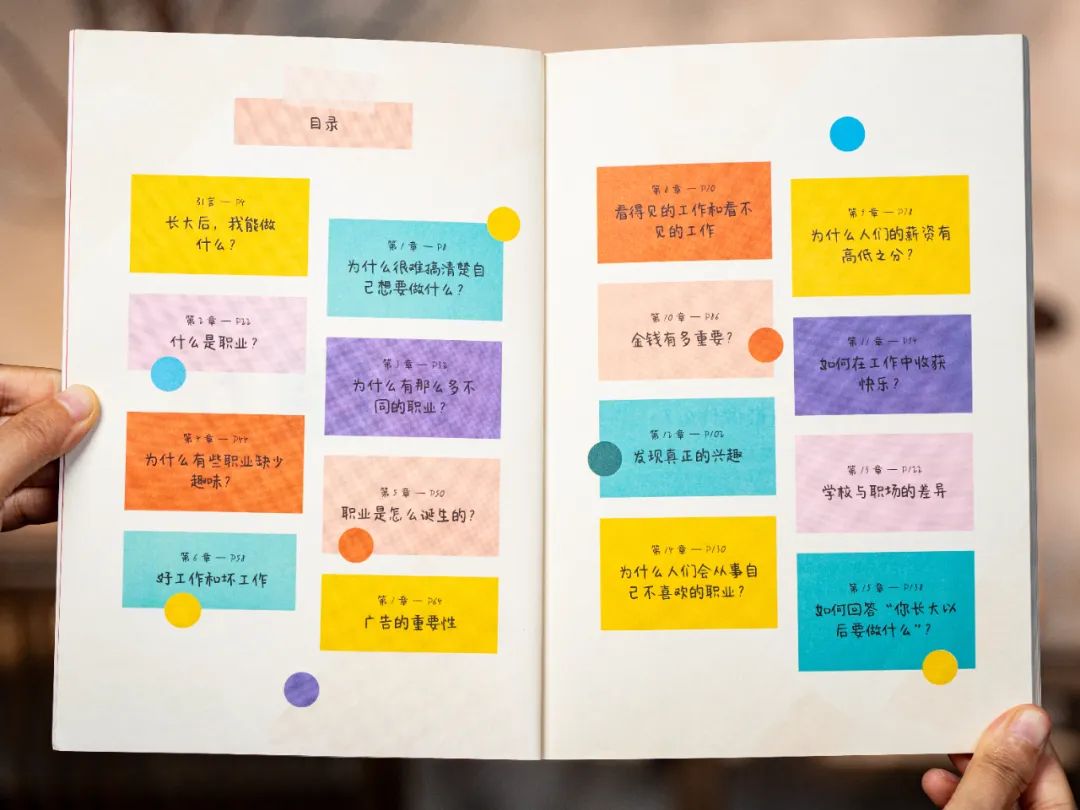 目录
引言 — P4
长大后,我能做
什么?
第1章 — P8
为什么很难搞清楚自
己想要做什么?
第2章 — P22
什么是职业?
第3章 — P32
为什么有那么多不
同的职业?
第4章 — P44
为什么有些职业缺少
趣味?
第5章 — P50
职业是怎么诞生的?
第6章 — P58
好工作和坏工作
第7章 — P64
广告的重要性
第8章 — P70
看得见的工作和看不
见的工作
第9章 — P78
为什么人们的薪资有
高低之分?
第10章 — P86
金钱有多重要?
第11章 — P94
如何在工作中收获
快乐?
第12章 — P102
发现真正的兴趣
第13章 — P122
学校与职场的差异
第14章 — P130
为什么人们会从事自
己不喜欢的职业?
第15章 — P138
如何回答“你长大以
后要做什么”?